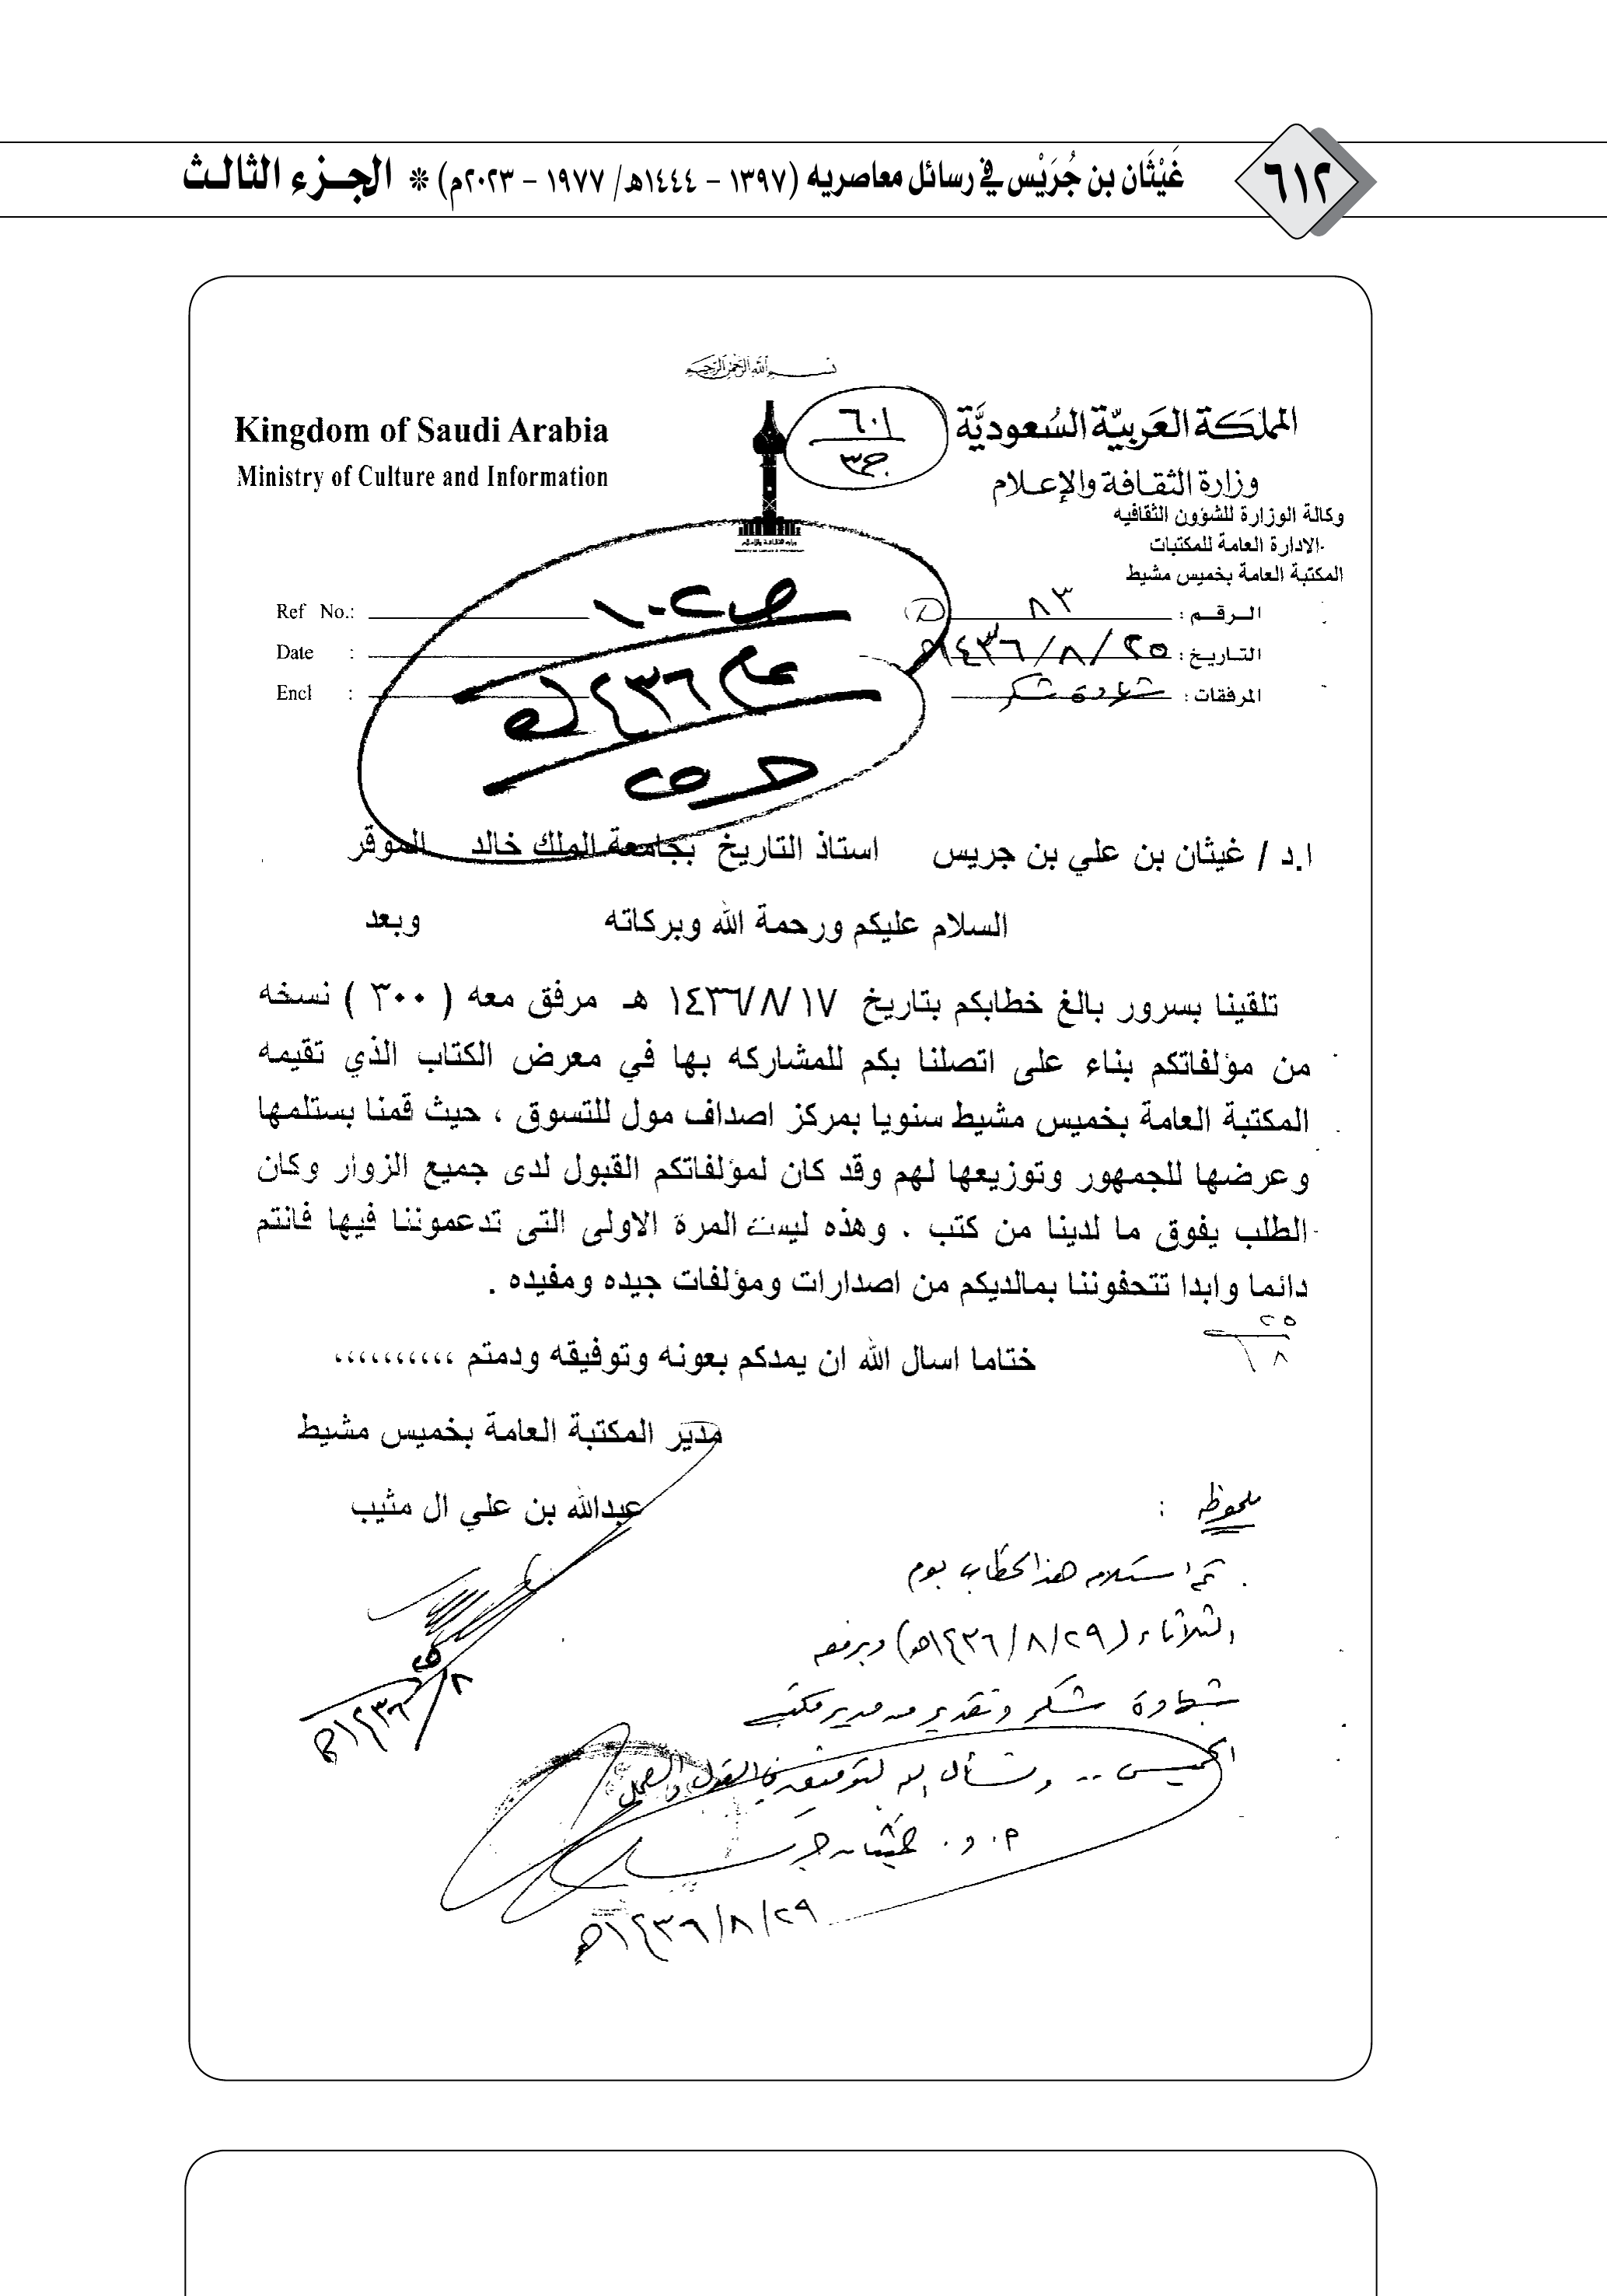 ٦١٢
غَيْثَان بن جُرَيْس في رسائل معاصريه (١٣٩٧ - ١٤٤٤هـ/ ١٩٧٧ - ٢٠٢٣م) * الجـزء الثالـث
بسم الله الرحمن الرحيم
المملكة العربية السعودية
وزارة الثقافة والإعلام
وكالة الوزارة للشؤون الثقافيه
الادارة العامة للمكتبات
المكتبة العامة بخميس مشيط
Kingdom of Saudi Arabia
Ministry of Culture and Information
٦٠١
ج٣
الرقم : ٨٣
التاريخ : ٢٥ / ٨ / ١٤٣٦هـ
المرفقات : شهادة شكر
Ref No.:
Date :
Encl :
ص١٠٢
عام ١٤٣٦هـ
ا.د / غيثان بن علي بن جريس استاذ التاريخ بجامعة الملك خالد الموقر
السلام عليكم ورحمة الله وبركاته وبعد
تلقينا بسرور بالغ خطابكم بتاريخ ١٤٣٦/٨/١٧ هـ مرفق معه ( ٣٠٠ ) نسخه
من مؤلفاتكم بناء على اتصلنا بكم للمشاركه بها في معرض الكتاب الذي تقيمه
المكتبة العامة بخميس مشيط سنويا بمركز اصداف مول للتسوق ، حيث قمنا بستلمها
وعرضها للجمهور وتوزيعها لهم وقد كان لمؤلفاتكم القبول لدى جميع الزوار وكان
الطلب يفوق ما لدينا من كتب . وهذه ليست المرة الاولى التى تدعموننا فيها فانتم
دائما وابدا تتحفوننا بمالديكم من اصدارات ومؤلفات جيده ومفيده .
٢٥
٨
ختاما اسال الله ان يمدكم بعونه وتوفيقه ودمتم ،،،،،،،،،،
مدير المكتبة العامة بخميس مشيط
عبدالله بن علي ال مثيب
٨ / ١٤٣٦هـ
ملحوظه :
تم استلام هذا الخطاب يوم
الثلاثاء (١٤٣٦/٨/٢٩هـ) وبرفقه
شهادة شكر وتقدير من مدير مكتبة
الخميس .. ونسأل الله التوفيق في القول والعمل
غيثان جريس
١٤٣٦/٨/٢٩هـ